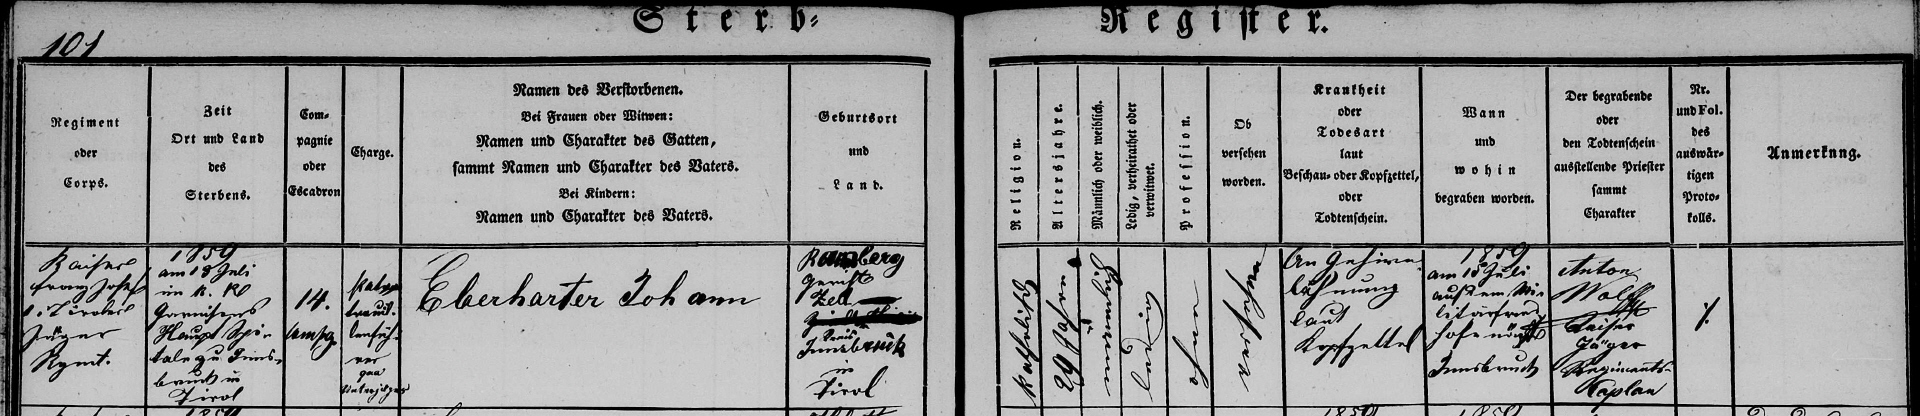 Sterb-Register.
101
Regiment
oder
Corps.
Zeit
Ort und Land
des
Sterbens.
Com-
pagnie
oder
Escadron
Charge.
Namen des Verstorbenen.
Bei Frauen oder Witwen:
Namen und Charakter des Gatten,
sammt Namen und Charakter des Vaters.
Bei Kindern:
Namen und Charakter des Vaters.
Geburtsort
und
Land.
Religion.
Altersjahre.
Männlich oder weiblich.
Ledig, verheirathet oder
verwitwet.
Profession.
Ob
versehen
worden.
Krankheit
oder
Todesart
laut
Beschau- oder Kopfzettel,
oder
Todtenschein.
Wann
und
wohin
begraben worden.
Der begrabende
oder
den Todtenschein
ausstellende Priester
sammt
Charakter
Nr.
und Fol.
des
auswär-
tigen
Proto-
kolls.
Anmerknng.
Kaiser
Franz Josef
Tiroler
Jäger
Rgmt.
1859
am 13 Juli
im k. k.
Garnisons
Haupt Spi-
tale zu Inns-
bruck in
Tirol
14.
Comp.
Eberharter Johann
Gericht
Zell
Kreis
Innsbruck
in
Tirol
Katholisch
29 Jahre
Männlich
Ledig
ohne
versehen
An Gehirn-
lähmung
laut
Kopfzettel
1859
am 15 Juli
auf dem Mi-
litärfried
hofe
Innsbruck
Anton
Wolff
Kaiser
Jäger
Regiments-
Kaplan